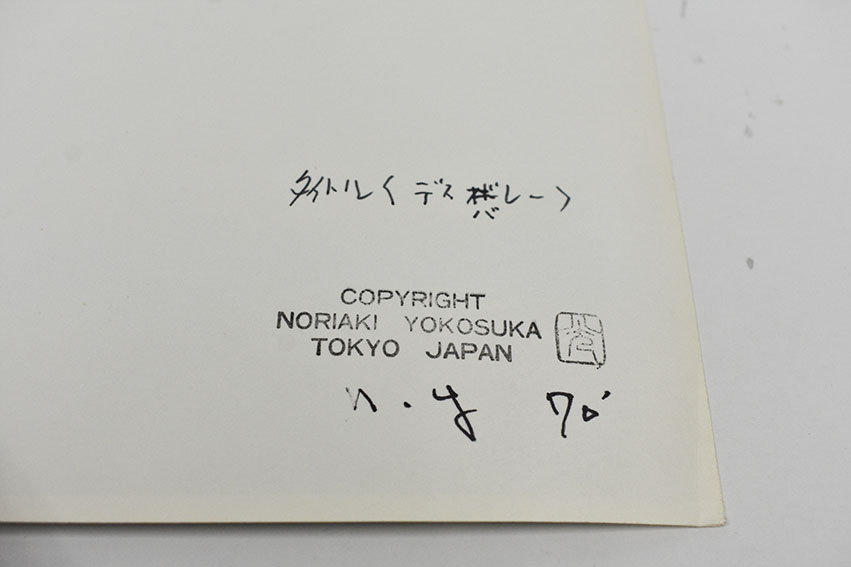 タイトル〈デスバレー〉
COPYRIGHT
NORIAKI YOKOSUKA
TOKYO JAPAN
n.y 70'